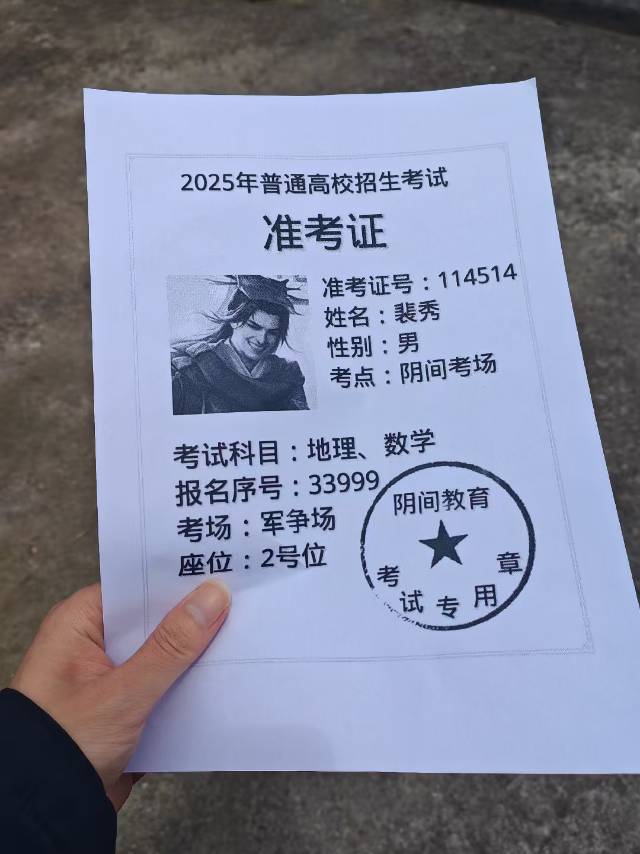 2025年普通高校招生考试
准考证
准考证号：114514
姓名：裴秀
性别：男
考点：阴间考场
考试科目：地理、数学
报名序号：33999
考场：军争场
座位：2号位
阴间教育
考试专用章